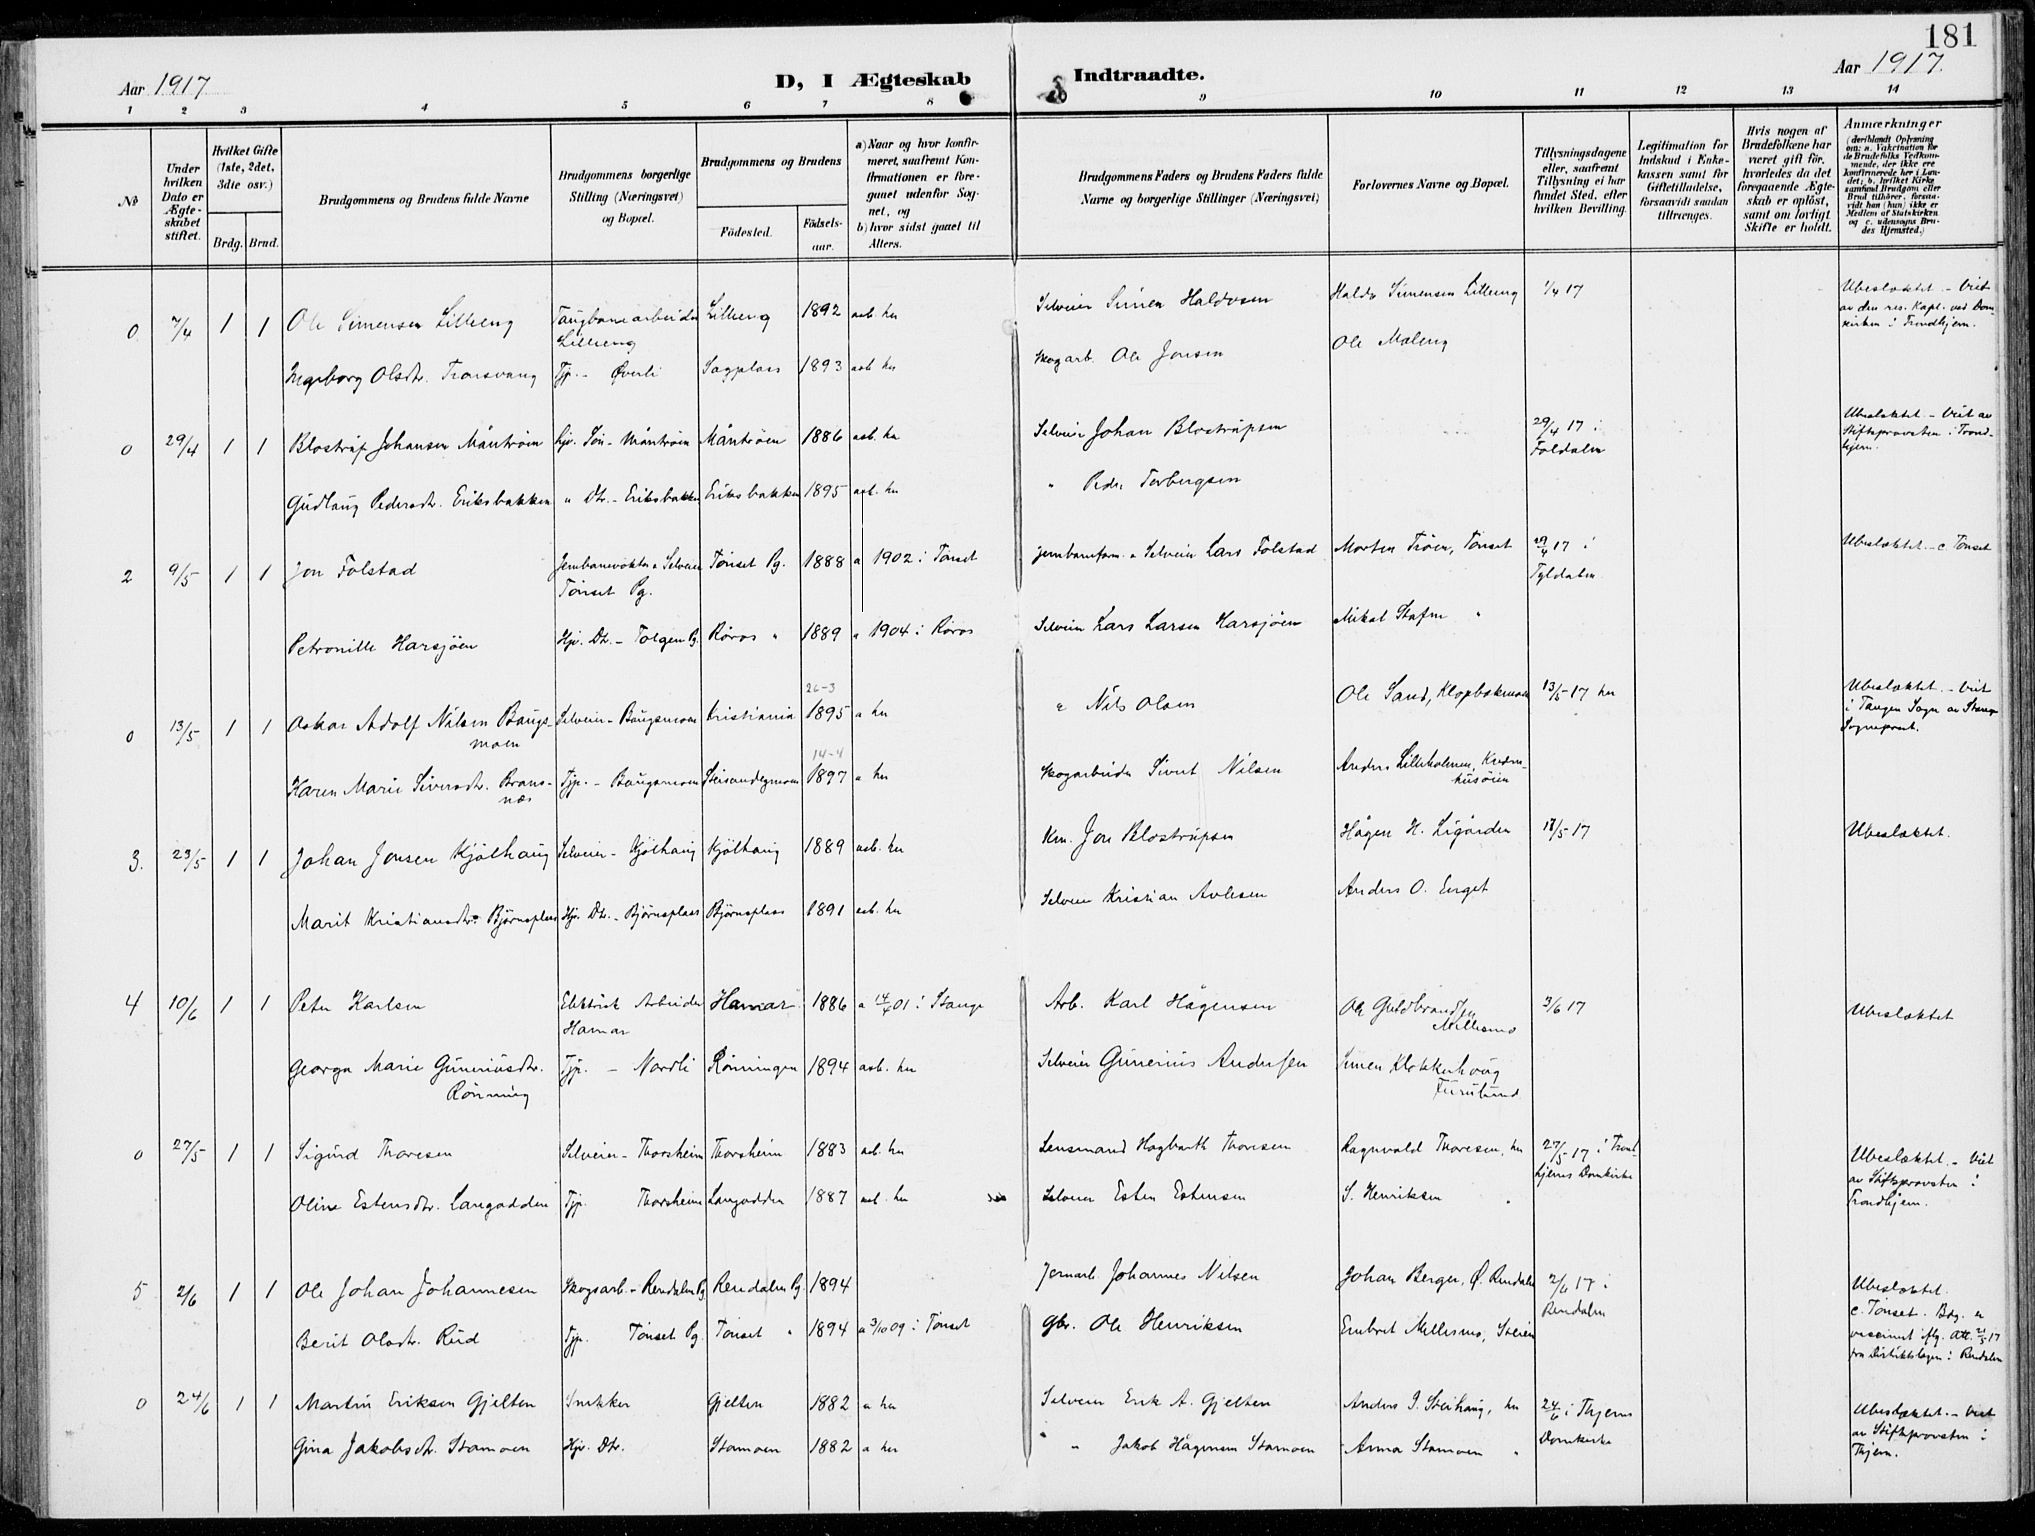 181
Aar 1917
D, I Ægteskab Indtraadte.
Aar 1917.
1 2 3 4 5 6 7 8 9 10 11 12 13 14
No
Under hvilken Dato er Ægteskabet stiftet.
Hvilket Gifte (1ste, 2det, 3dte osv.)
Brdg. Brud.
Brudgommens og Brudens fulde Navne
Brudgommens borgerlige Stilling (Næringsvei) og Bopæl.
Brudgommens og Brudens
Födested.
Födselsaar.
a) Naar og hvor konfirmeret, saafremt Konfirmationen er foregaaet udenfor Sognet, og
b) hvor sidst gaaet til Alters.
Brudgommens Faders og Brudens Faders fulde Navne og borgerlige Stillinger (Næringsvei)
Forlovernes Navne og Bopæl.
Tillysningsdagene eller, saafremt Tillysning ei har fundet Sted, efter hvilken Bevilling.
Legitimation for Indskud i Enkekassen samt for Giftetilladelse, forsaavidt saadan tiltrænges.
Hvis nogen af Brudefolkene har været gift för, hvorledes da det foregaaende Ægteskab er oplöst, samt om lovligt Skifte er holdt.
Anmærkninger
(deriblandt Oplysning om: a. Vakcination for de Brudefolks Vedkommende, der ikke ere konfirmerede her i Landet; b. hvilket Kirkesamfund Brudgom eller Brud tilhörer, forsaavidt han (hun) ikke er Medlem af Statskirken og c. udensogns Brudes Hjemsted.)
0 7/4 1 1 Ole Simensen Lilleeng Taugbanearbeider Lilleeng 1892 asb. her Selveier Simen Haldosen Haldo Simensen Lilleeng 1/4 17 Ubeslektet - Viet
Lilleeng Ole Moleng av den res. Kapl. ved Domkirken i Trondhjem.
Ingeborg Olsdtr. Tronsvang Tjp. - Øverli Sagplass 1893 asb. her Skogarb. Ole Jonsen
0 29/4 1 1 Blostrup Johansen Måntrøen Hjv. Søn - Måntrøen Måntrøen 1886 asb. her Selveier Johan Blostrupsen 29/4 17 i Foldalen Ubeslektet - Viet av Stiftsprovsten i Trondhjem.
Gudlaug Pedersdtr. Eriksbakken " Dtr. - Eriksbakken Eriksbakken 1895 asb. her " Peder Torbergsen
2 9/5 1 1 Jon Folstad Jernbanevokter o Selveier Tønset Pg. 1888 a 1902 i Tønset Jernbaneform. o Selveier Lars Folstad Morten Trøen, Tønset 29/4 17 i Tyldalen Ubeslektet - c Tønset
Tønset Pg.
Petronille Harsjøen Hjv. Dtr. - Tolgen Pg. Røros " 1889 a 1904 i Røros Selveier Lars Larsen Harsjøen Mikal Stafne "
26-3
0 13/5 1 1 Oskar Adolf Nilsen Baugsmoen Selveier - Baugsmoen Kristiania 1895 a her " Nils Olsen Ole Sand, Klopbakmoen 13/5 17 her Ubeslektet - Viet
i Tangen Sogn av Stange Sogneprest.
14-4
Karen Marie Siversdtr. Bransnæs Tjp. - Baugsmoen 1897 a her Skogarbeider Sivert Nilsen Anders Lilleholmen,
3. 23/5 1 1 Johan Jonsen Kjølhaug Selveier - Kjølhaug Kjølhaug 1889 asb. her Km. Jon Blostrupsen Hågen H. Ligården 17/5 17 Ubeslektet.
Marit Kristiansdtr. Bjørnsplass Hjv. Dtr. - Bjørnsplass Bjørnsplass 1891 asb. her Selveier Kristian Avlesen Anders O. Enget
4 10/6 1 1 Peter Karlsen Elektrisk Arbeider Hamar 1886 a 14/4 01 i Stange Arb. Karl Hågensen Ole Guldbrandsen Mellesmo 3/6 17 Ubeslektet
Hamar
Georga Marie Guneriusdtr. Rønning Tjp. - Nordli Rønningen 1894 asb. her Selveier Gunerius Andersen Simen Klokkerhoug Furulund
0 27/5 1 1 Sigurd Thoresen Selveier - Thorsheim Thorsheim 1883 asb. her Lensmand Hagbarth Thoresen Ragnvald Thoresen, her 27/5 17 i Trondhjems Domkirke Ubeslektet - Viet
av Stiftsprovsten i Trondhjem.
Oline Estensdtr. Langodden Tjp. Thorsheim Langodden 1887 asb. her Selveier Esten Estensen S. Henriksen "
5 2/6 1 1 Ole Johan Johannesen Skogsarb. - Rendalen Pg. Rendalen Pg. 1894 Jernarb. Johannes Nilsen Johan Berger, Ø. Rendalen 2/6 17 i Rendalen Ubeslektet.
Berit Olsdtr. Rud Tjp. Tønset Pg. Tønset " 1894 a 3/10 09 i Tønset Gbr. Ole Henriksen Embret Mellesmo, Steien c. Tønset. Bdg. e vaccinert iflg. Att. 21/5 17 fra Distriktslægen i Rendalen
0 24/6 1 1 Martin Eriksen Gjelten Snekker Gjelten 1882 a her Selveier Erik A. Gjelten Anders J. Steihaug, her 24/6 i Thjems Domkirke Ubeslektet - Viet av Stiftsprovsten i Thjem.
Gina Jakobsdtr. Stamoen Hjv. Dtr. Stamoen 1882 a her " Jakob Hågensen Stamoen Arna Stamoen "